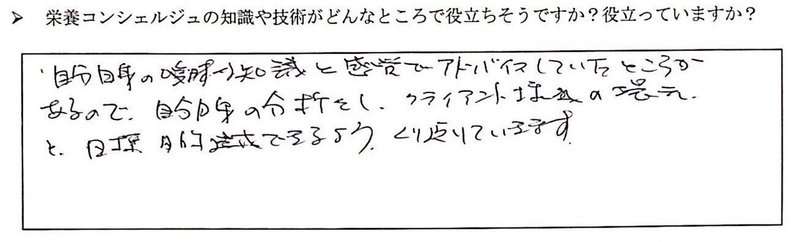 ➤ 栄養コンシェルジュの知識や技術がどんなところで役立ちそうですか？役立っていますか？
自分自身の曖昧な知識と感覚でアドバイスしていたところが
あるので、自分自身の分析をし、クライアント様の
と、目標 目的達成できるよう、くり返しています